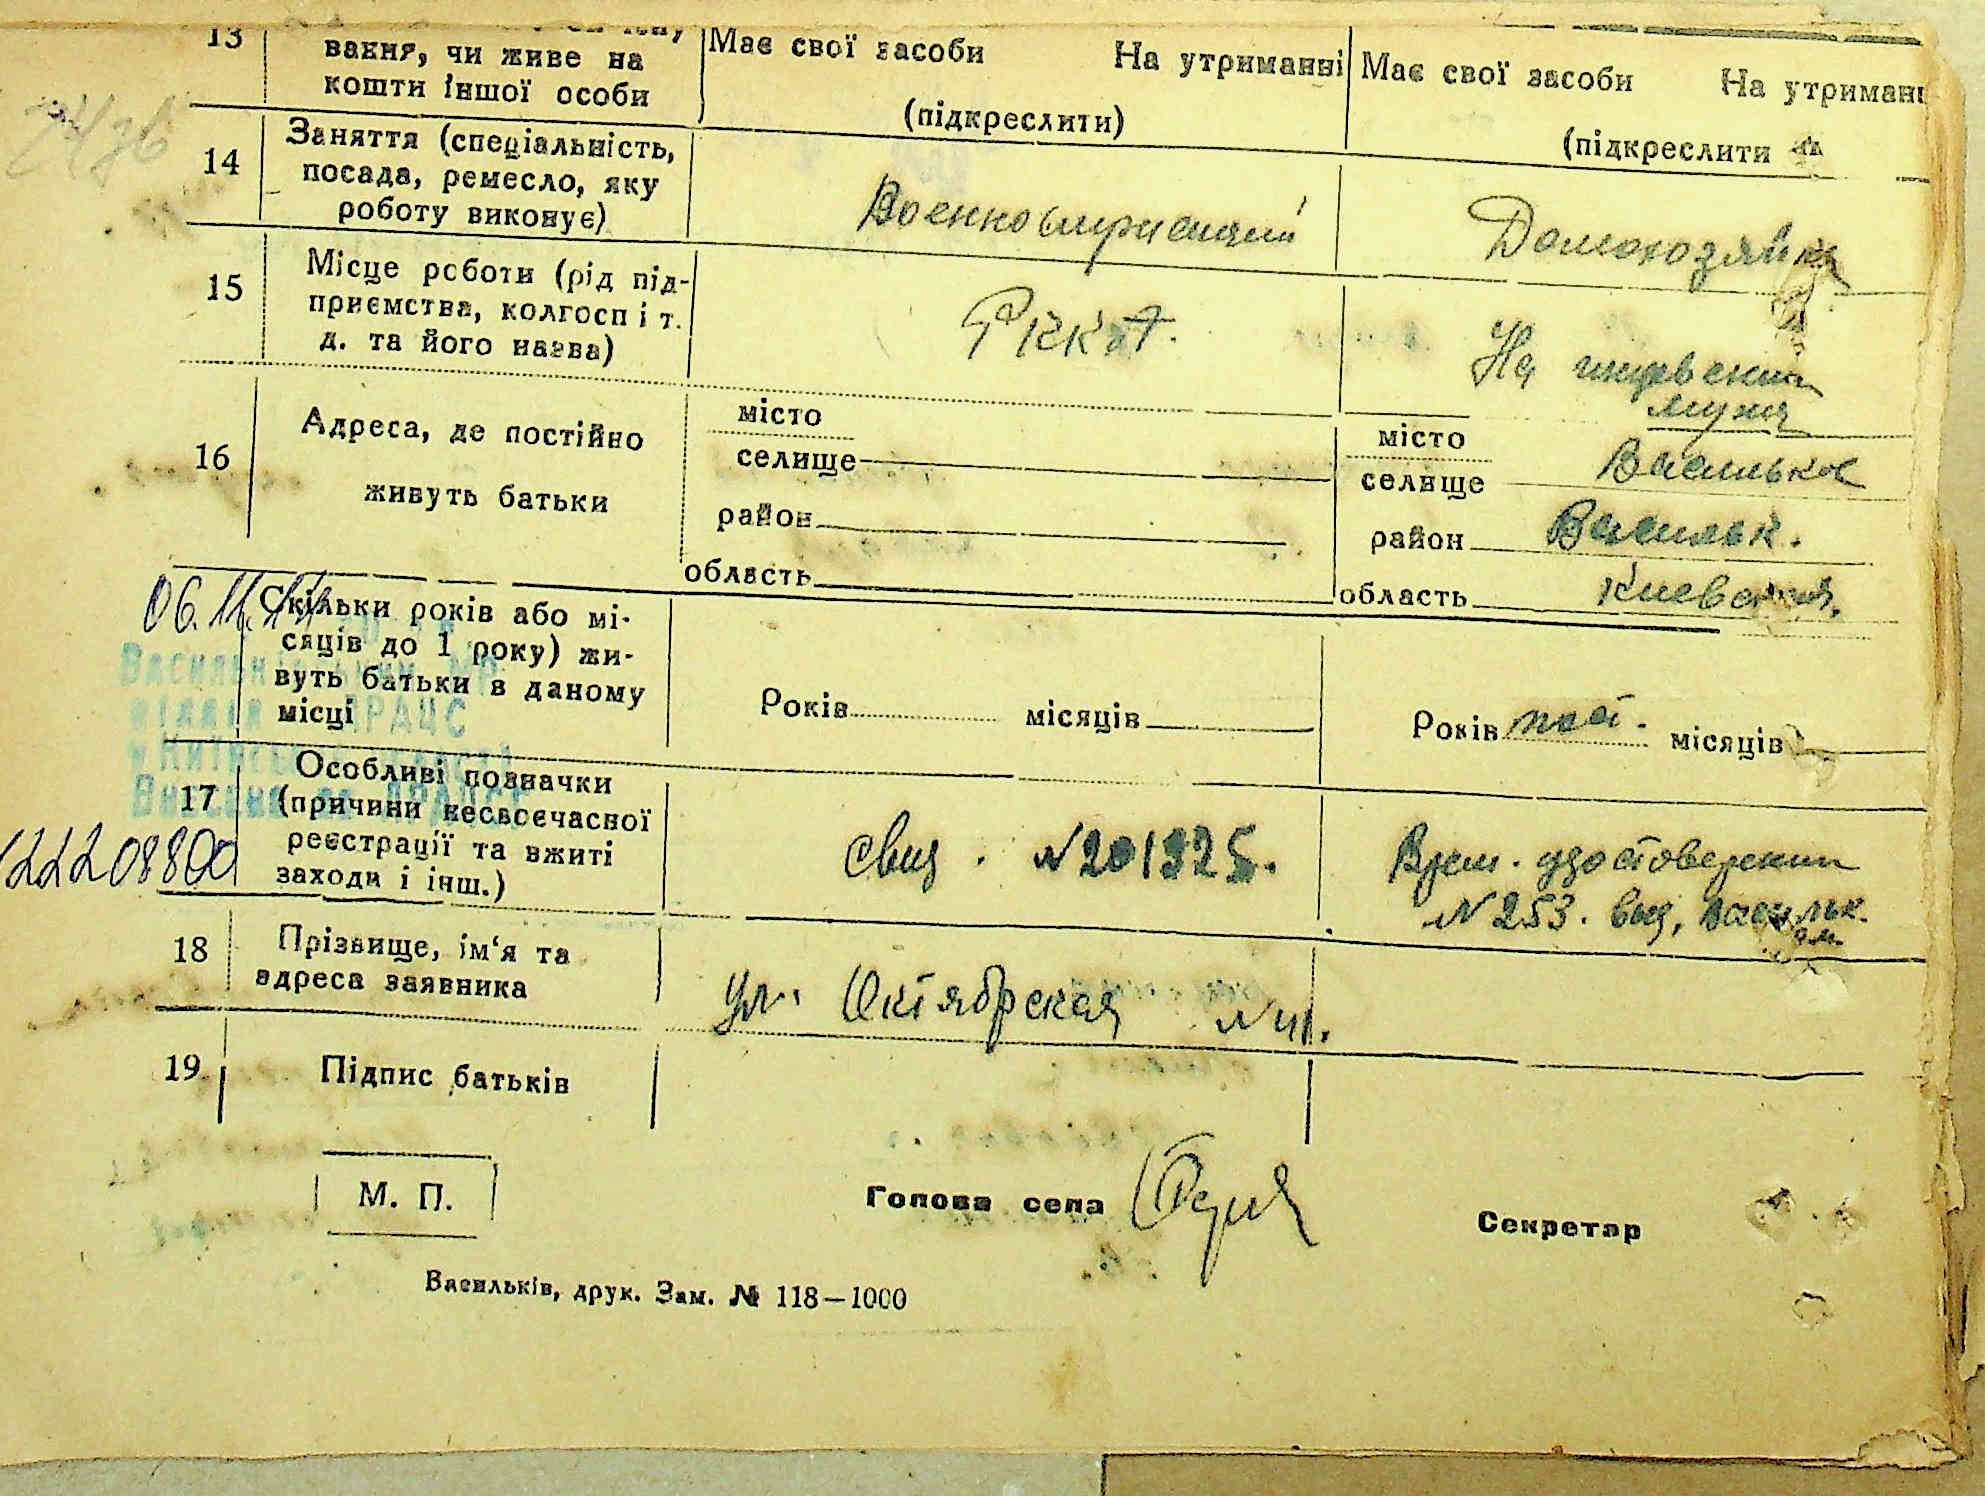 13
вання, чи живе на
кошти іншої особи
Має свої засоби На утриманні
(підкреслити)
Має свої засоби На утриманн
(підкреслити
14
Заняття (спеціальність,
посада, ремесло, яку
роботу виконує)
Военнослужащий
Домохозяйка
15
Місце роботи (рід під-
приємства, колгосп і т.
д. та його назва)
РККА.
На иждвении
мужа
16
Адреса, де постійно
живуть батьки
місто
селище
район
область
місто
селище Васильков
район Васильк.
область Киевская.
06.11.
Скільки років або мі-
сяців до 1 року) жи-
вуть батьки в даному
місці
Років місяців
Років пост. місяців
Васильківський
ДРАЦС
17
Особливі позначки
(причини несвоєчасної
реєстрації та вжиті
заходи і інш.)
Свид. №201325.
Врем. удостоверении
№253. выд. Васильк.
122208800
18
Прізвище, ім'я та
адреса заявника
ул. Октябрская №41.
19
Підпис батьків
М. П.
Голова села
Секретар
Васильків, друк. Зам. № 118—1000